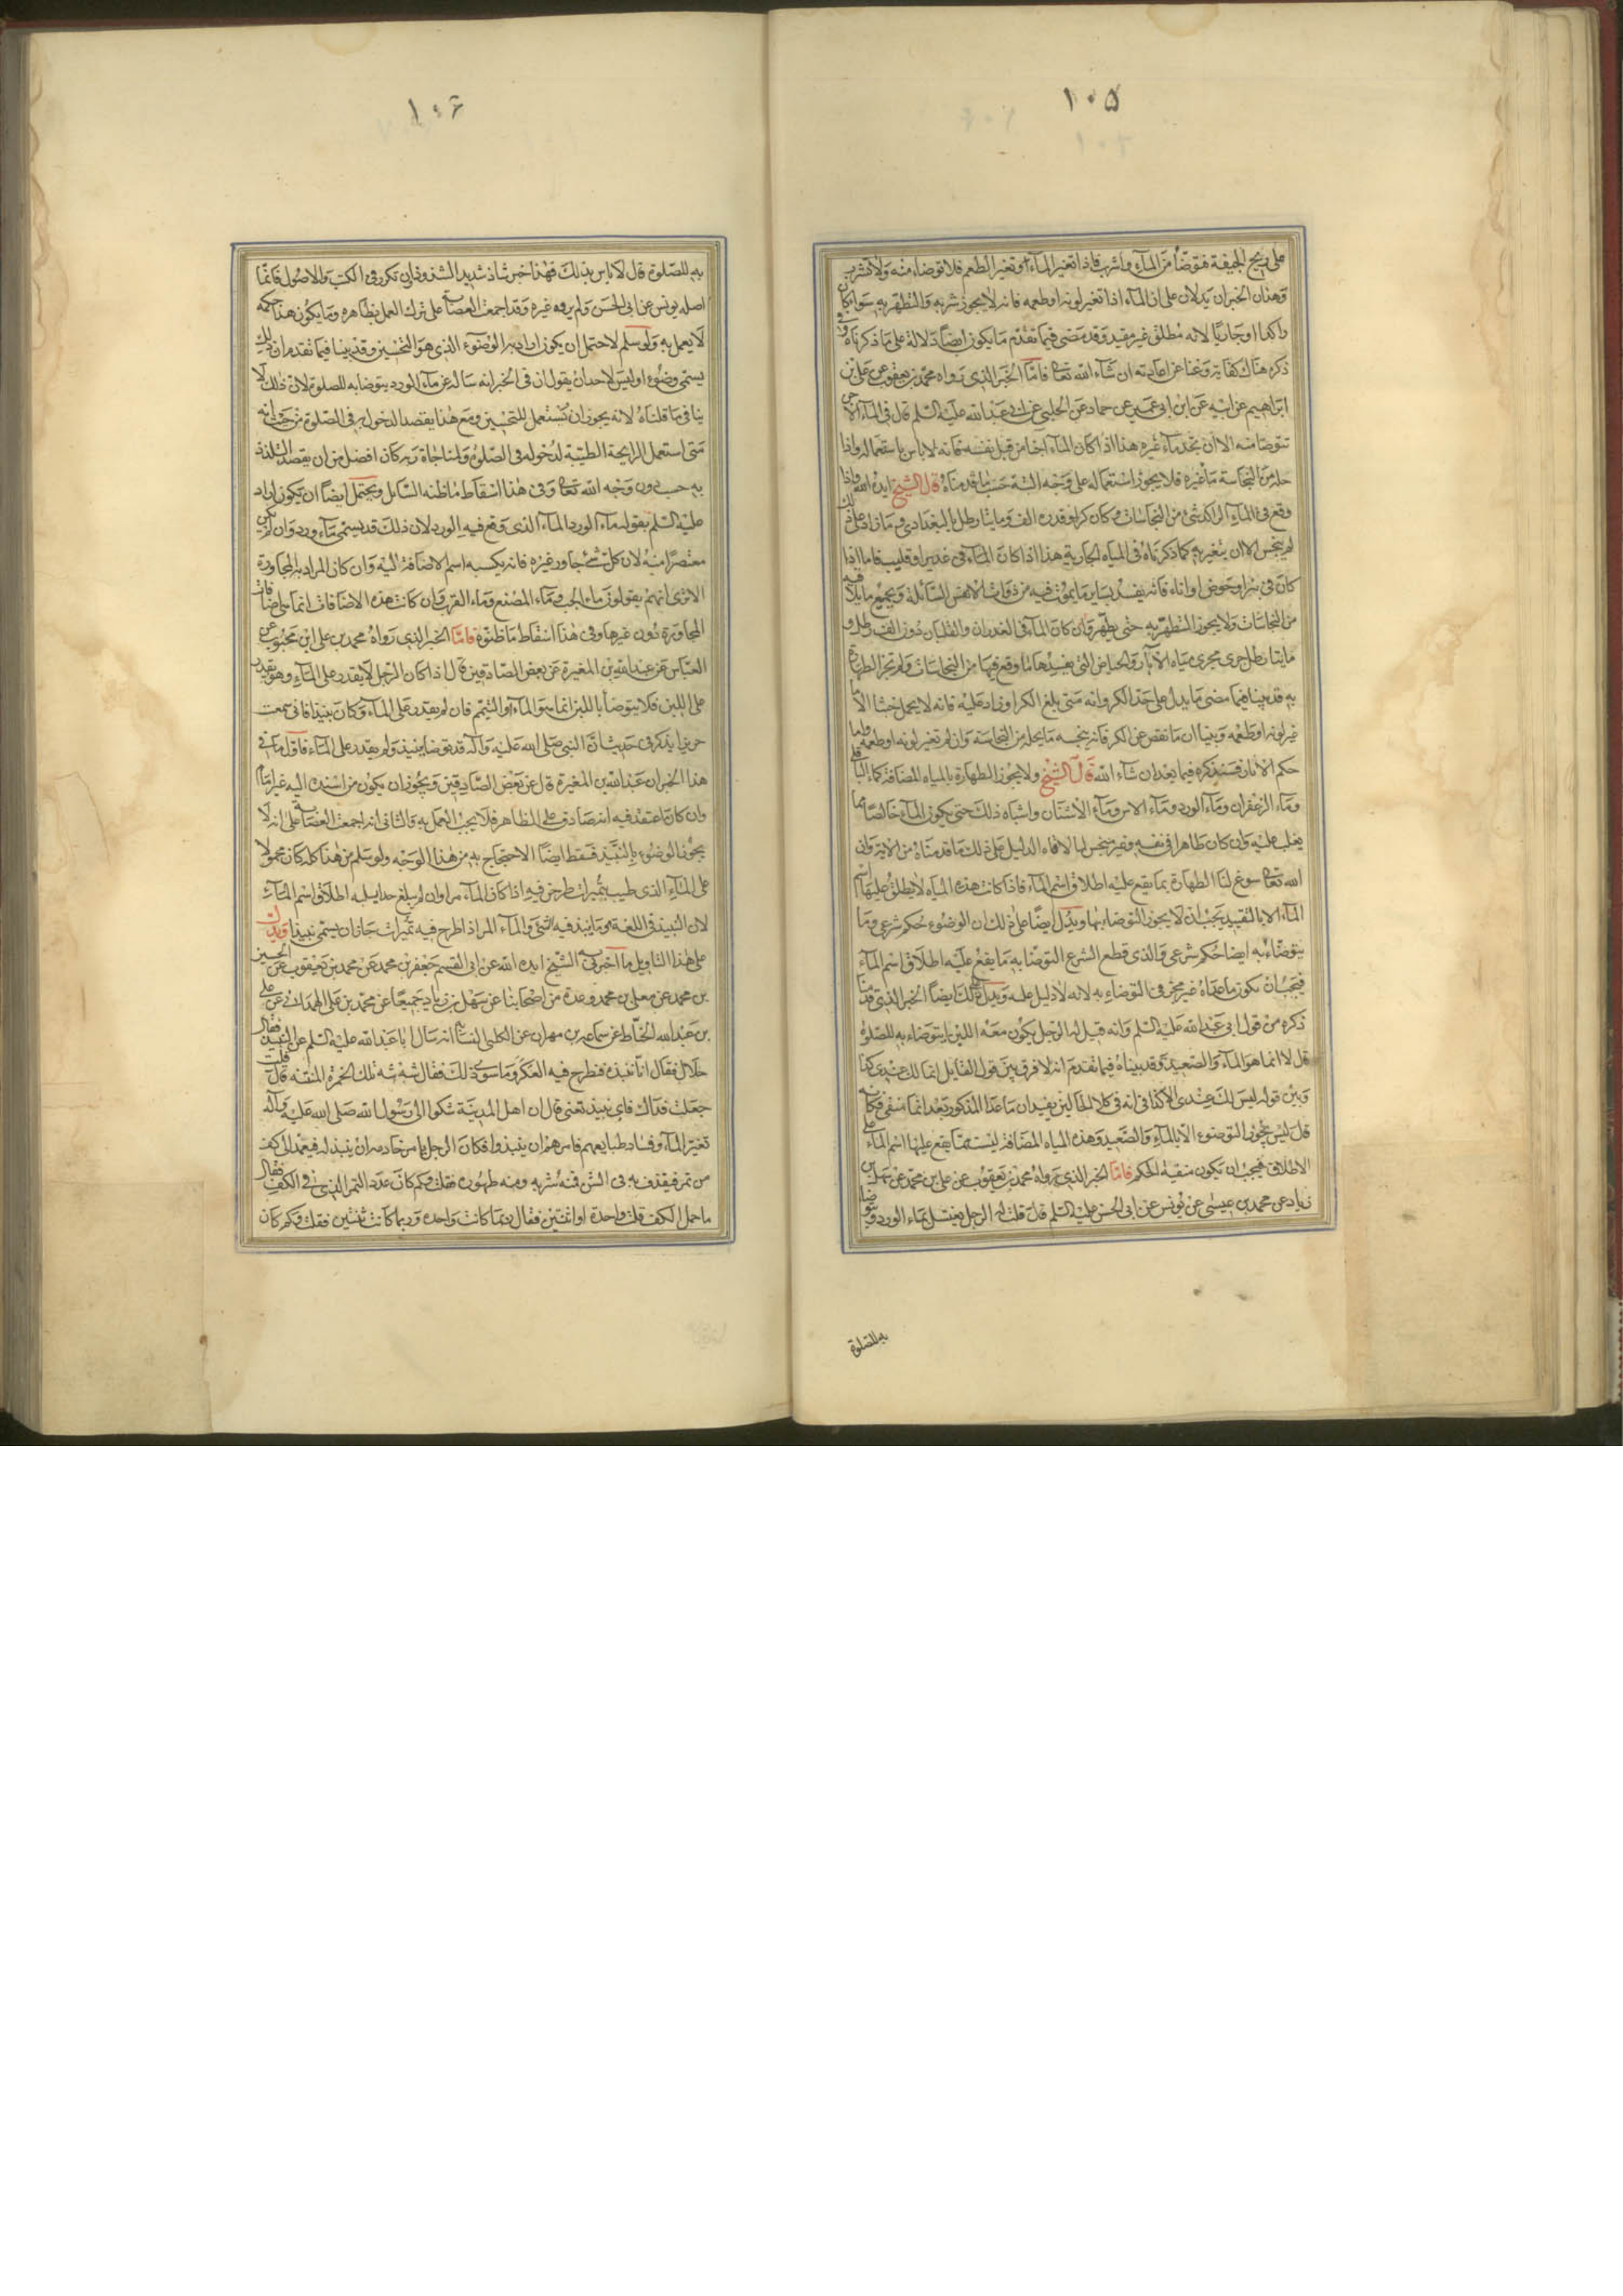 ١٠٥
على ريح الجيفة فتوضأ من الماء واشرب فاذا تغير الماء او تغير الطعم فلا توضاء منه ولا تشرب
وهذان الخبران يدلان على ان الماء اذا تغير لونه او طعمه فانه لا يجوز شربه والتطهر به سواء كان
راكدا او جاريا لانه مطلق غير مقيد وقد مضى فيما تقدم ما يكون ايضا دلالة على ما ذكرناه وفى
ذكره هناك كفاية وغنا عن اعادته ان شاء الله تعا فامّا الخبر الذى رواه محمد بن يعقوب عن على بن
ابراهيم عن ابيه عن ابن ابى عمير عن حماد عن الحلبى عن ابى عبد الله عليه السلم قال فى الماء الاجن
تتوضا منه الا ان تجد ماء غيره هذا اذا كان الماء اجنا من قبل نفسه فانه لا باس باستعماله واذا
حله من النجاسة ما غيره فلا يجوز استعماله على وجه البتة حسب ما قدمناه قال الشيخ ايده الله واذا
وقع فى الماء الراكد شئ من النجاسات وكان كرا وقدره الف ومايتا رطل بالبغدادى وما زاد على ذلك
لم ينجس الا ان يتغير به كما ذكرناه فى المياه الجارية هذا اذا كان الماء فى غدير او قليب فاما اذا
كان فى بئر او حوض او اناء فانه يفسد بساير ما يموت فيه من ذوات الانفس السائلة وبجميع ما يلاقيه
من النجاسات ولا يجوز التطهر به حتى يطهر وان كان الماء فى الغدران والقلبان دون الف رطل و
مايتا رطل جرى مجرى مياه الآبار والحياض التى يفسدها ما وقع فيها من النجاسات ولم تجز الطهارة
به قد بينا فيما مضى ما يدل على حد الكر وانه متى بلغ الكر او زاد عليه فانه لا يحمل خبثا الا ما
غير لونه او طعمه وبينا ان ما نقص عن الكر فانه ينجسه ما يحله من النجاسة وان لم تغير لونه او طعمه واما
حكم الابار فسنذكره فيما بعد ان شاء الله قال الشيخ ولا يجوز الطهارة بالمياه المضافة كماء الباقلى
وماء الزعفران وماء الورد وماء الاس وماء الاشنان واشباه ذلك حتى يكون الماء خالصا مما
يغلب عليه وان كان طاهرا فى نفسه وغير منجس لما لاقاه الدليل على ذلك ما قدمناه من الاية وان
الله تعا سوغ لنا الطهارة بما يقع عليه اطلاق اسم الماء فاذا كانت هذه المياه لا يطلق عليها اسم
الماء الا بالتقييد يجب ان لا يجوز التوضا بها ويدل ايضا على ذلك ان الوضوء حكم شرعى وما
يتوضاء به ايضا حكم شرعى والذى قطع الشرع التوضا به ما يقع عليه اطلاق اسم الماء
فيجب ان يكون ما عداه غير مجز فى التوضاء به لانه لا دليل عليه ويدل على ذلك ايضا الخبر الذى قدمنا
ذكره من قول ابى عبد الله عليه السلم وانه قيل له الرجل يكون معه اللبن ايتوضاء به للصلوة
قال لا انما هو الماء والصعيد وقد بيناه فيما تقدم انه لا فرق بين قول القايل انما لك عندى كذا
وبين قوله ليس لك عندى الا كذا فى انه فى كلا الحالين يفيدان ما عدا المذكور بعد انما منفى فكانه
قال ليس يجوز التوضوء الا بالماء والصعيد وهذه المياه المضافة ليست مما يقع عليها اسم الماء على
الاطلاق فيجب ان تكون منفية الحكم فامّا الخبر الذى رواه محمد بن يعقوب عن على بن محمد عن سهل بن
زياد عن محمد بن عيسى عن يونس عن ابى الحسن عليه السلم قال قلت له الرجل يغتسل بماء الورد ويتوضا
به للصلوة
١٠٦
به للصلوة قال لا باس بذلك فهذا خبر شاذ شديد الشذوذ وان تكرر فى الكتب والاصول فانما
اصله يونس عن ابى الحسن ولم يروه غيره وقد اجمعت العصابة على ترك العمل بظاهره وما يكون هذا حكمه
لا يعمل به ولو سلم لاحتمل ان يكون اراد به الوضوء الذى هو التحسين وقد بينا فيما تقدم ان ذلك
يسمى وضوء اوليس لاحد ان يقول ان فى الخبر انه ساله عن ماء الورد يتوضا به للصلوة لان ذلك لا
ينافى ما قلناه لانه يجوز ان يستعمل للتحسين ومع هذا يقصد الدخول به فى الصلوة من حيث انه
متى استعمل الرايحة الطيبة لدخوله فى الصلوة ولمناجاة ربه كان افضل من ان يقصد التلذذ
به حسب دون وجه الله تعا وفى هذا اسقاط ما ظنه السائل ويحتمل ايضا ان يكون اراد
عليه السلم بقوله ماء الورد الماء الذى وقع فيه الورد لان ذلك قد يسمى ماء ورد وان لم يكن
معتصرا منه لان كل شئ جاور غيره فانه يكسبه اسم الاضافة اليه وان كان المراد به المجاورة
الا ترى انهم يقولون ماء الحب وماء المصنع وماء القرب وان كانت هذه الاضافات انما هى اضافات
المجاورة دون غيرها وفى هذا اسقاط ما ظنوه فامّا الخبر الذى رواه محمد بن على ابن محبوب عن
العباس عن عبد الله بن المغيرة عن بعض الصادقين قال اذا كان الرجل لا يقدر على الماء وهو يقدر
على اللبن فلا يتوضأ باللبن انما هو الماء او التيمم فان لم يقدر على الماء وكان نبيذا فانى سمعت
حريزا يذكر فى حديث ان النبى صلى الله عليه وآله قد توضا بنبيذ ولم يقدر على الماء فاول ما فى
هذا الخبر ان عبد الله بن المغيرة قال عن بعض الصادقين ويجوز ان يكون من اسنده اليه غير امام
وان كان اعتقد فيه انه صادق على الظاهر فلا يجب العمل به والثانى انه اجمعت العصابة على انه لا
يجوز الوضوء بالنبيذ فسقط ايضا الاحتجاج به من هذا الوجه ولو سلم من هذا كله كان محمولا
على الماء الذى طيب بتميرات طرحن فيه اذا كان الماء مرا وان لم يبلغ حدا يسلبه اطلاق اسم الماء
لان النبيذ فى اللغة هو ما ينبذ فيه الشئ والماء المر اذا طرح فيه تميرات جاز ان يسمى نبيذا ويدل
على هذا التاويل ما اخبرنى به الشيخ ايده الله عن ابى القسم جعفر بن محمد عن محمد بن يعقوب عن الحسين
بن محمد عن معلى بن محمد وعدة من اصحابنا عن سهل بن زياد جميعا عن محمد بن على الهمدانى عن على
بن عبد الله الخياط عن سماعة بن مهران عن الكلبى النسابة انه سال ابا عبد الله عليه السلم عن النبيذ فقال
حلال فقال انا ننبذه فنطرح فيه العكر وما سوى ذلك فقال شه شه تلك الخمرة المنتنة قال قلت
جعلت فداك فاى نبيذ تعنى قال ان اهل المدينة شكوا الى رسول الله صلى الله عليه وآله
تغير الماء وفساد طبايعهم فامرهم ان ينبذوا فكان الرجل يامر خادمه ان ينبذ له فيعمد الى كف
من تمر فيقذف به فى الشن فمنه شربه ومنه طهوره فقلت وكم كان عدد التمر الذى فى الكف فقال
ما حمل الكف قلت واحدة او اثنتين فقال ربما كانت واحدة وربما كانت ثنتين فقلت وكم كان